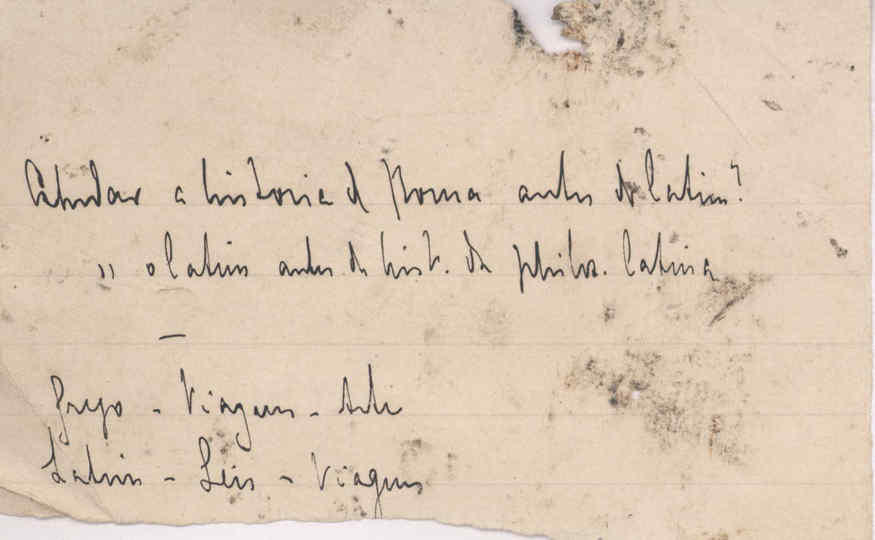 Estudar a historia de Roma antes do latim?
" o latim antes da hist. da philos. latina
—
Grego - Viagens - Arte
Latim - Leis - Viagens